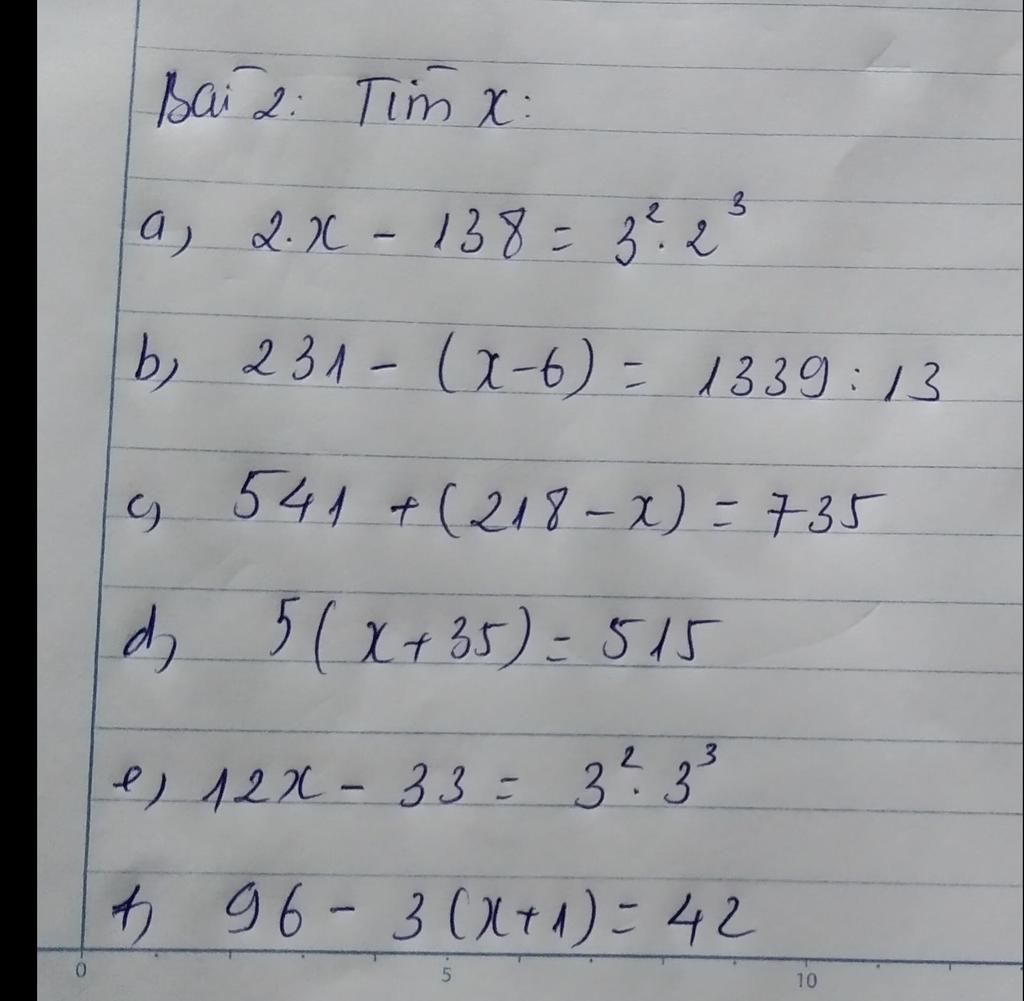 Bài 2: Tìm x:
a, 2.x - 138 = 3². 2³
b, 231 - (x-6) = 1339 : 13
c, 541 + (218 - x) = 735
d, 5(x+35) = 515
e, 12x - 33 = 3². 3³
f, 96 - 3(x+1) = 42
0 5 10